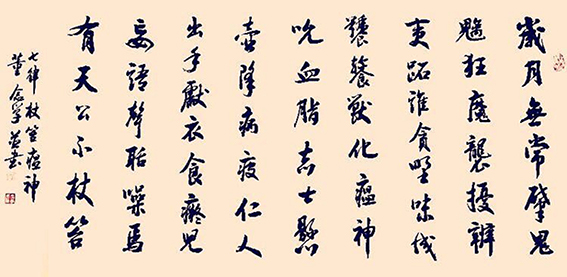 歲月無常孽鬼
魑狂魔襲擾辨
夷跖誰貪野味成
饕餮獸化瘟神
吮血脂志士懸
壺降病疫仁人
出手獻衣食癡兒
妄語聲聒噪焉
有天公不杖笞
七律杖笞瘟神
董念學並書